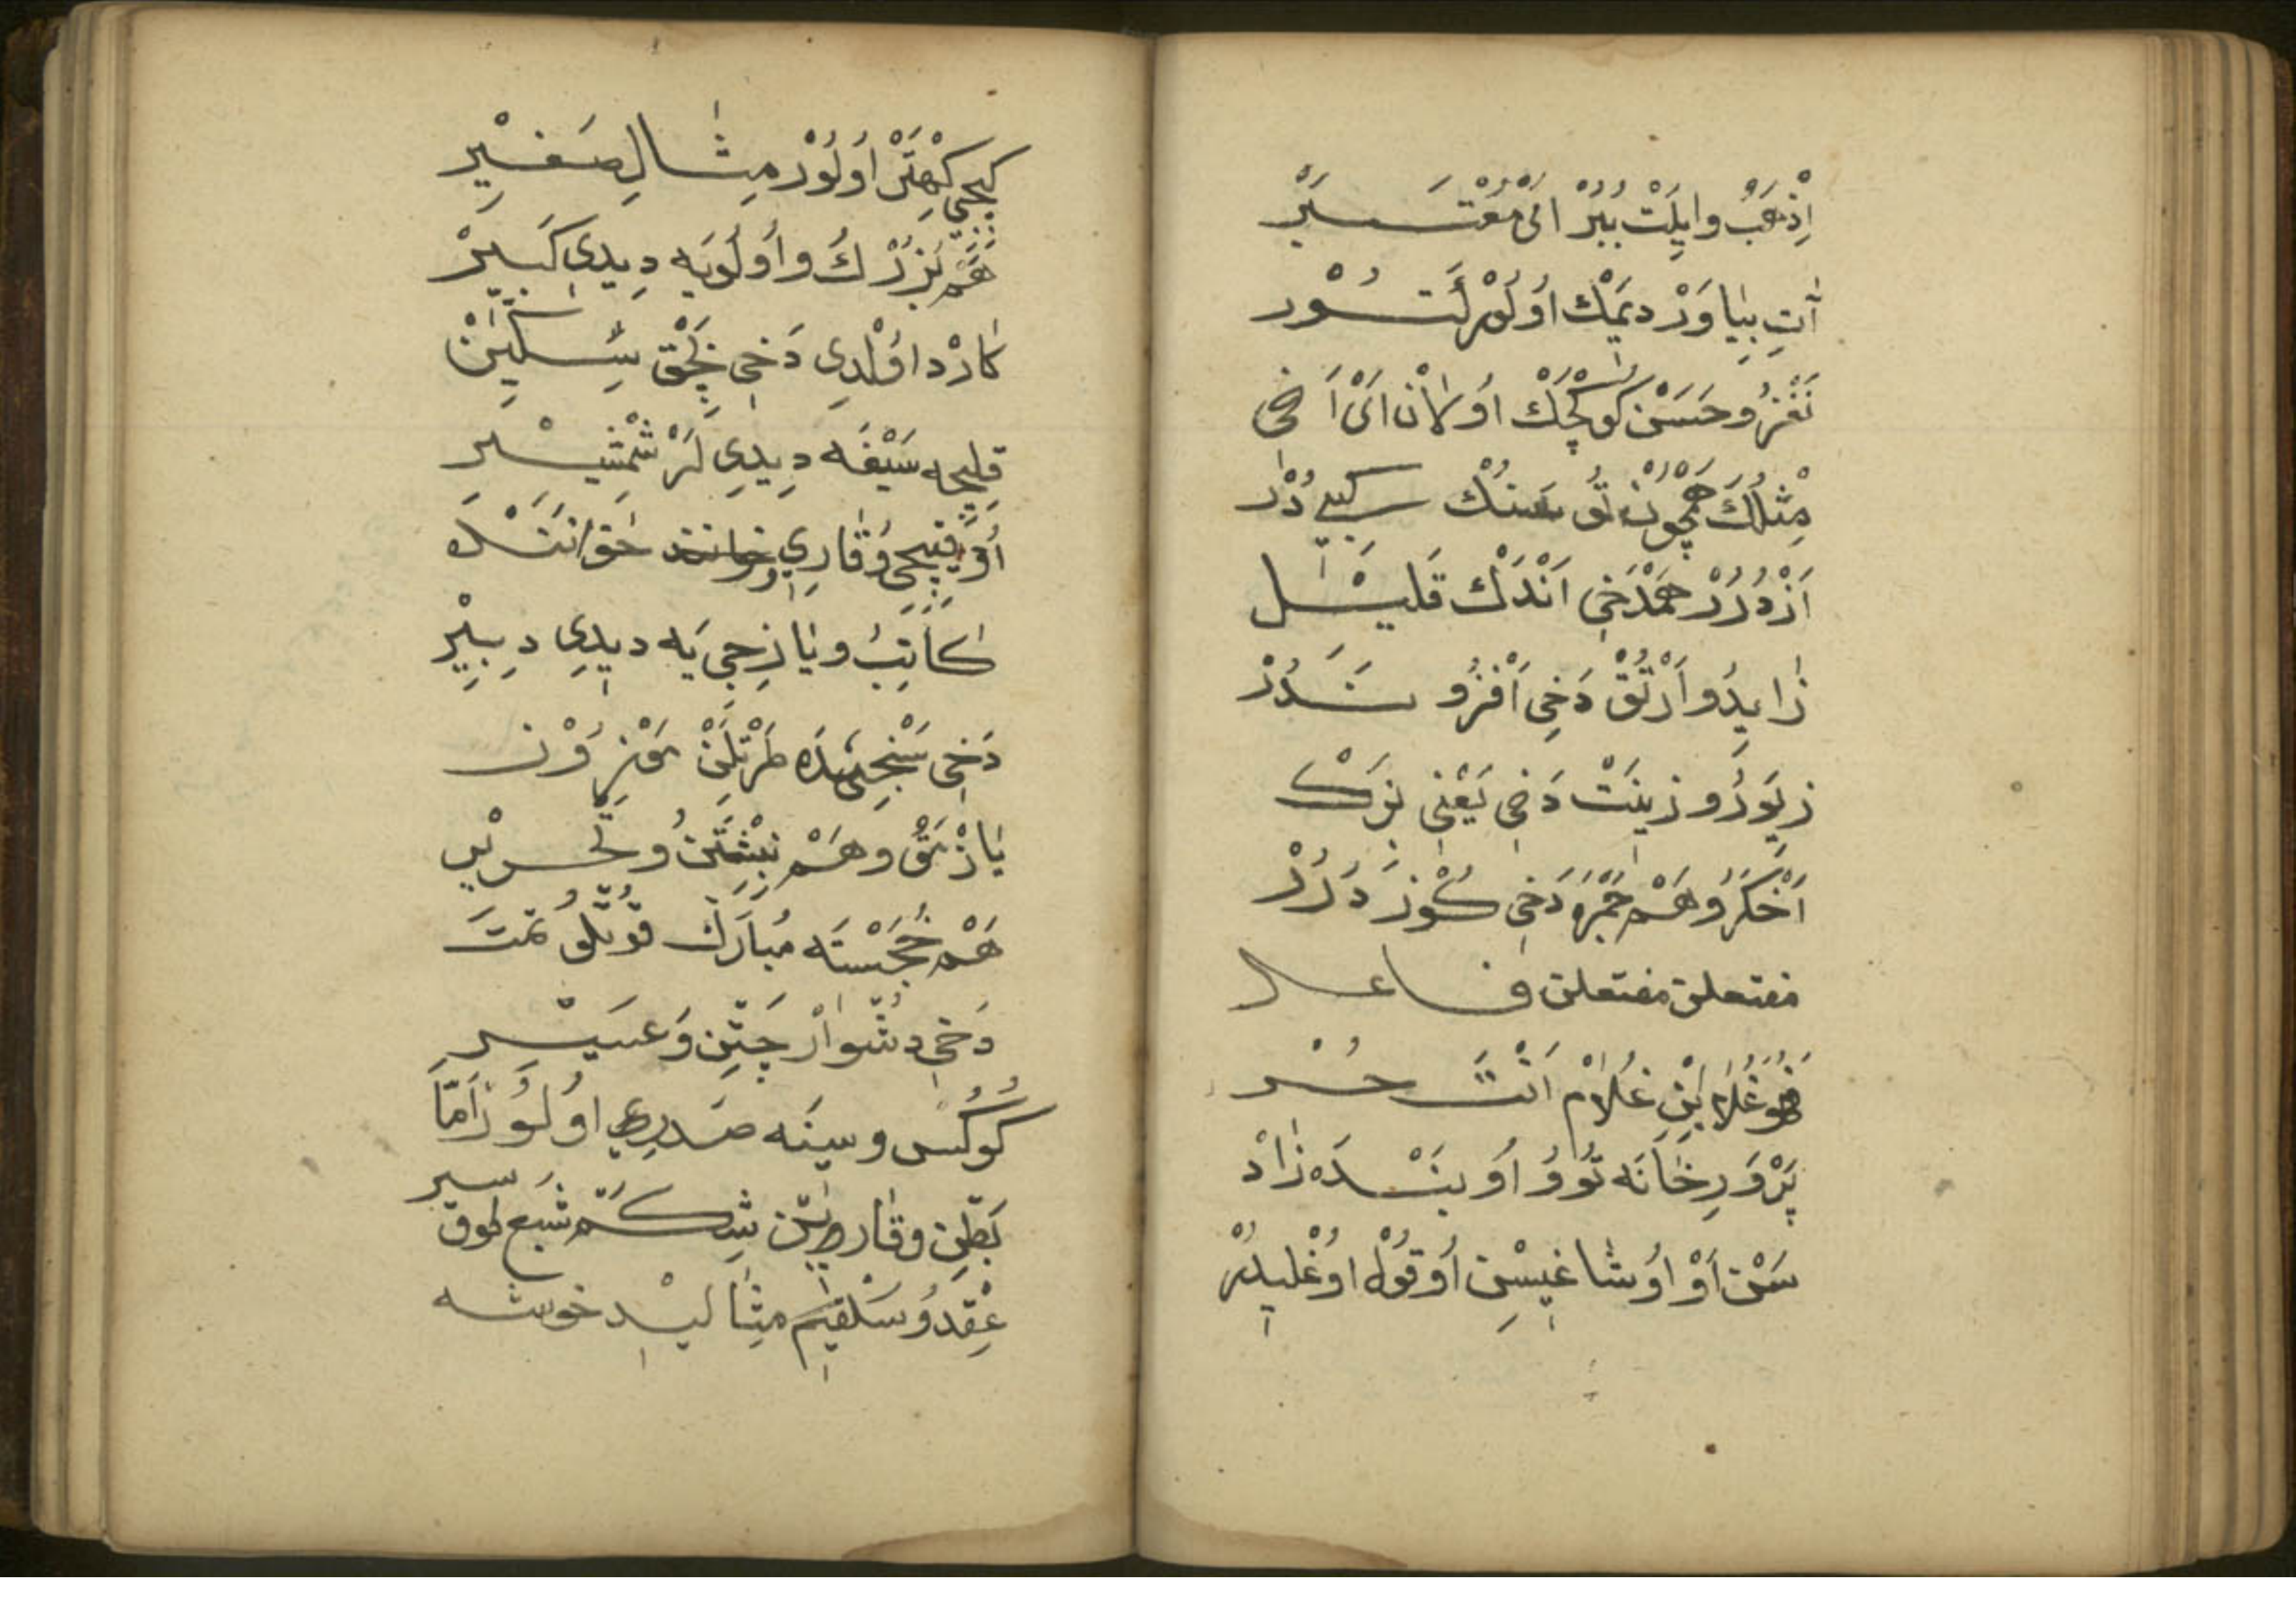 اِذْهَبْ وايلَتْ بُبُرْ انی مُعْتَبَرْ
آتِ بِيٰاوَرْ ديمَك اوُلُورْ كَتُورْ
نَغْزُ و حَسَنْ كوُكْچَكْ اوُلاٰنْ اَیْ اَخی
مِثْلُكَ هَمْچُونْ تُو سنُكْ كبی دُرْ
اَزْدُرُرْ هَمْ دَخی اَنْدَكْ قَليٖلْ
زٰايِدُ و اَرْتُقْ دَخِی اَفْزُو نَدُرْ
زيوَرُ و زينَتْ دَخی يَعْنی بزَكْ
اَخْكَرُ و هَمْ جَمْرَه دَخی كُوْز دَرُرْ
مفتعلن مفتعلن فاعل
هُوَ غُلاٰمُ ابْنِ غُلاٰمْ اَنْتَ حُر
پَرْوَرِ خٰانَه تُوُ و اوُ بَنْدَه زٰادْ
سَنْ اَوْ اوُشاغيسِنْ اوُ قوُلْ اوُغْليدُرْ
كيچی كِهْتَرْ اوُلوُرْ مِثٰالِ صَغيٖرْ
هَمْ بُزُرْكُ و اوُلوُيَه ديدی كَبيٖرْ
كٰارْد اوُلْدی دَخی بِچَقْ سِكّيٖنْ
قليجه سَيْفَه ديدی لَرْ شَمْشيٖر
اوُقيجی و قٰاری خوٰانَنْدَه
كٰاتِبُ و يٰازجی يَه ديدی دبيٖرْ
دَخی سَنْجيدَه طَرْتلَنْ مَوْزوُن
يٰازْمَقُ و هَمْ نِبِشْتَنُ و تَحْريٖر
هَمْ خُجَسْتَه مُبٰارَك قوُتْلوُ تمَتَ
دَخی دشْوٰارْ چَتِن وَ عَسيٖر
كوُكُس و سينَه صَدر اوُلوُر اَمّا
بَطْن و قٰارن شِكَمْ شَبع طوق سير
عِقْد و سَلْقِم مثٰاليدِ خوشه